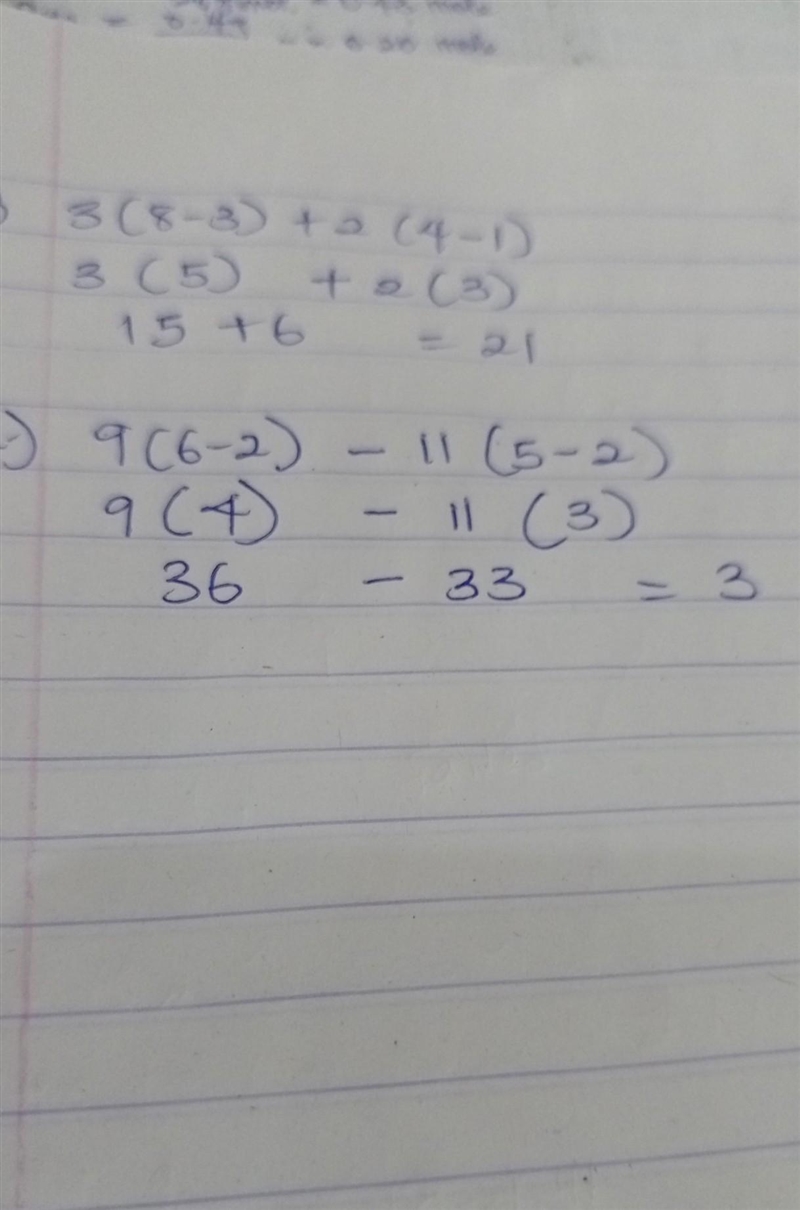 3(8-3) + 2 (4-1)
3 (5) + 2 (3)
15 + 6 = 21
9(6-2) - 11 (5-2)
9 (4) - 11 (3)
36 - 33 = 3